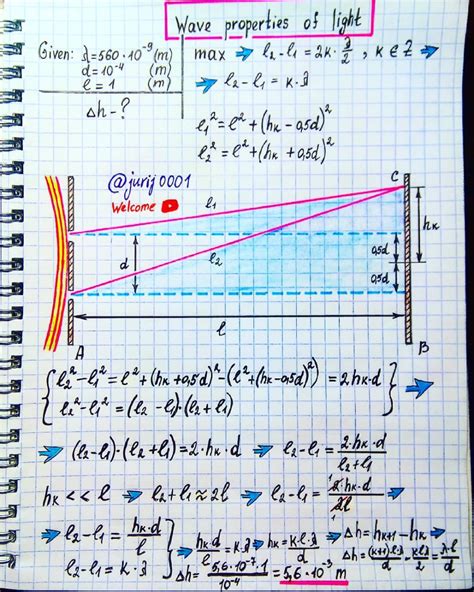 Wave properties of light
Given: λ=560·10⁻⁹ (m)
d=10⁻⁴ (m)
l=1 (m)
Δh-?
max ⇒ l₂-l₁=2k·λ/2, k∈Z ⇒
⇒ l₂-l₁=k·λ
l₁²=l²+(hк-0,5d)²
l₂²=l²+(hк+0,5d)²
@jurij0001
Welcome
l₁
l₂
d
l
A
B
C
hк
0,5d
0,5d
{l₂²-l₁²=l²+(hк+0,5d)²-(l²+(hк-0,5d)²)=2hк·d
l₂²-l₁²=(l₂-l₁)·(l₂+l₁)} ⇒
⇒ (l₂-l₁)·(l₂+l₁)=2·hк·d ⇒ l₂-l₁=2·hк·d/l₂+l₁
hк<<l ⇒ l₂+l₁≈2l ⇒ l₂-l₁=2·hк·d/2l ⇒
⇒ l₂-l₁=hк·d/l
l₂-l₁=k·λ} ⇒ hк·d/l=k·λ ⇒ hк=k·l·λ/d ⇒ Δh=hк+1-hк ⇒
Δh=(k+1)·l·λ/d-k·l·λ/d=λ·l/d
Δh=5,6·10⁻⁷·1/10⁻⁴=5,6·10⁻³ m